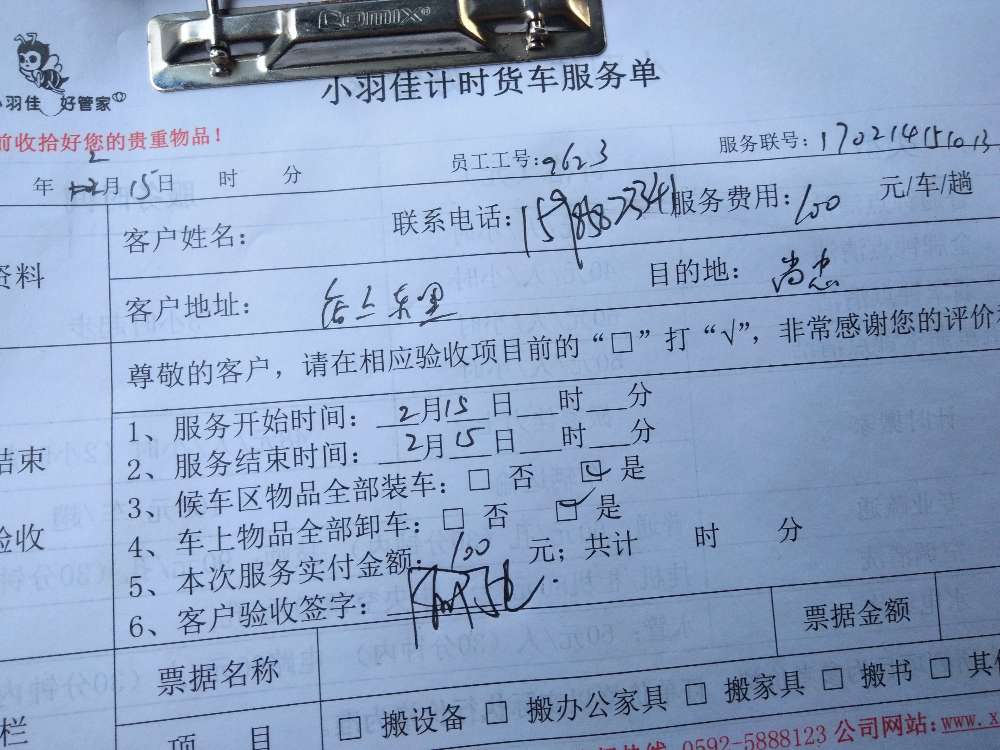 Comix®
小羽佳计时货车服务单
小羽佳 好管家
前收拾好您的贵重物品！
员工工号：9623 服务联号：170214151013
年 2月15日 时 分
客户姓名： 联系电话： 服务费用：100 元/车/趟
资料
客户地址： 东里 目的地：尚忠
尊敬的客户，请在相应验收项目前的“□”打“√”，非常感谢您的评价
1、服务开始时间：2月15日 时 分
结束
2、服务结束时间：2月15日 时 分
3、候车区物品全部装车：□ 否 ☑ 是
验收
4、车上物品全部卸车：□ 否 ☑ 是
5、本次服务实付金额：100 元；共计 时 分
6、客户验收签字：
票据名称 票据金额
栏
项 目 □ 搬设备 □ 搬办公家具 □ 搬家具 □ 搬书 □ 其他
热线 0592-5888123 公司网站：www.x